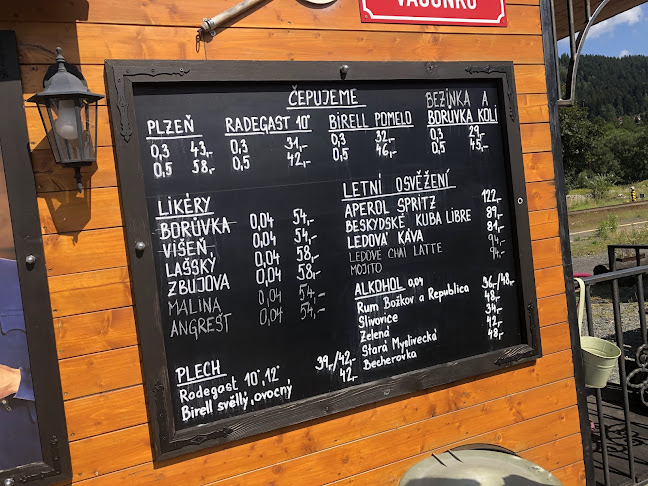 VAGÓNKU
ČEPUJEME
PLZEŇ
0,3 43,-
0,5 58,-
RADEGAST 10°
0,3 31,-
0,5 42,-
BIRELL POMELO
0,3 32,-
0,5 46,-
BEZINKA A
BORŮVKA KOLI
0,3 29,-
0,5 45,-
LIKÉRY
BORŮVKA 0,04 54,-
VIŠEŇ 0,04 54,-
LAŠSKÝ 0,04 58,-
ZBUJOVA 0,04 58,-
MALINA 0,04 54,-
ANGREŠT 0,04 54,-
LETNÍ OSVĚŽENÍ
APEROL SPRITZ 122,-
BESKYDSKÉ KUBA LIBRE 89,-
LEDOVÁ KÁVA 81,-
LEDOVÉ CHAI LATTE 94,-
MOJITO 94,-
ALKOHOL 0,04
Rum Božkov a Republica 36,-/48,-
Slivovice 48,-
Zelená 34,-
Stará Myslivecká 42,-
Becherovka 48,-
PLECH
Radegast 10°, 12° 39,-/42,-
Birell světlý, ovocný 42,-